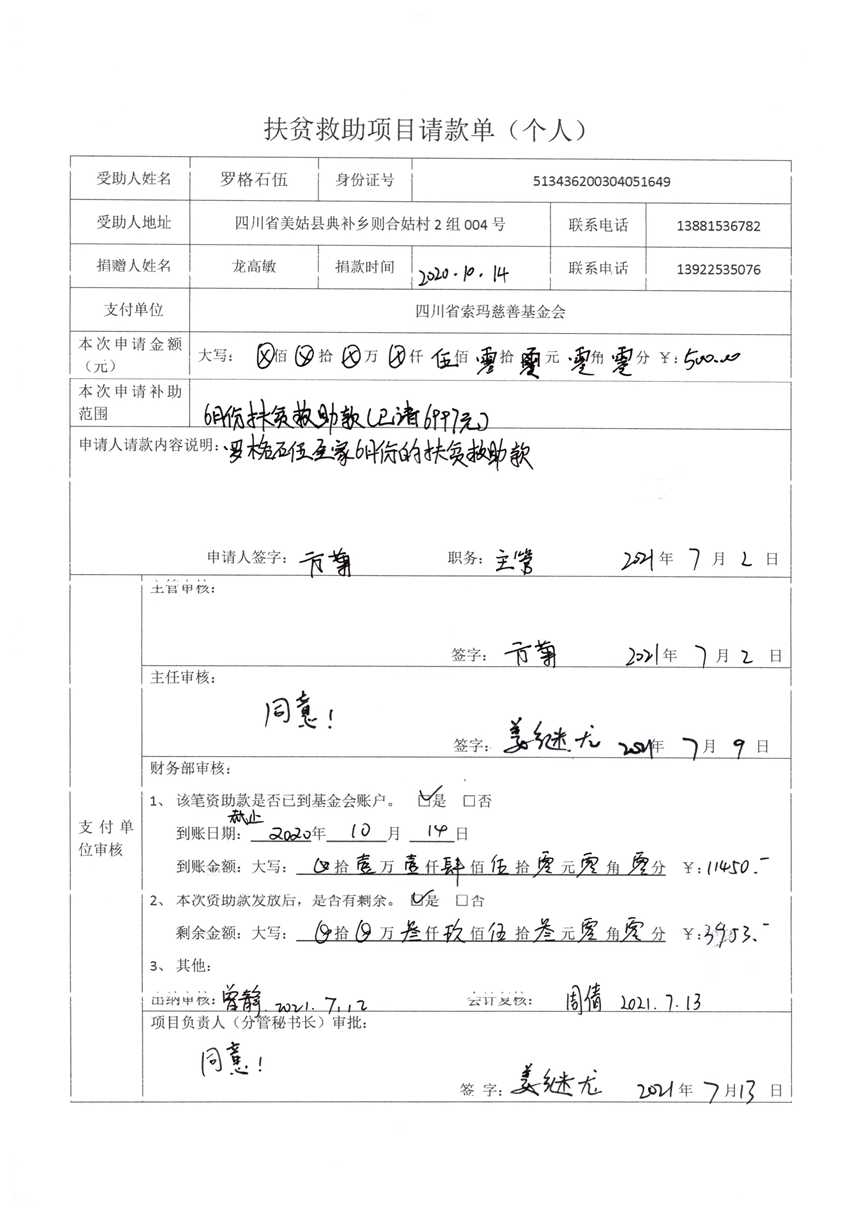 扶贫救助项目请款单（个人）
受助人姓名 罗格石伍 身份证号 513436200304051649
受助人地址 四川省美姑县典补乡则合姑村2组004号 联系电话 13881536782
捐赠人姓名 龙高敏 捐款时间 2020.10.14 联系电话 13922535076
支付单位 四川省索玛慈善基金会
本次申请金额（元） 大写：⊗佰⊗拾⊗万⊗仟伍佰零拾零元零角零分 ￥：500.00
本次申请补助范围 6月份扶贫救助款（已请6997元）
申请人请款内容说明：罗格石伍至家6月份的扶贫救助款
申请人签字：方菊 职务：主管 2021年7月2日
支付单位审核
主管审核：
签字：方菊 2021年7月2日
主任审核：
同意！
签字：姜继尤 2021年7月9日
财务部审核：
1、 该笔资助款是否已到基金会账户。 ☑是 □否
截止
到账日期：2020年10月14日
到账金额：大写：⊗拾壹万壹仟肆佰伍拾零元零角零分 ￥：11450.-
2、 本次资助款发放后，是否有剩余。 ☑是 □否
剩余金额：大写：⊗拾⊗万叁仟玖佰伍拾叁元零角零分 ￥：3953.-
3、 其他：
出纳审核：曾静 2021.7.12 会计复核：周倩 2021.7.13
项目负责人（分管秘书长）审批：
同意！
签字：姜继尤 2021年7月13日